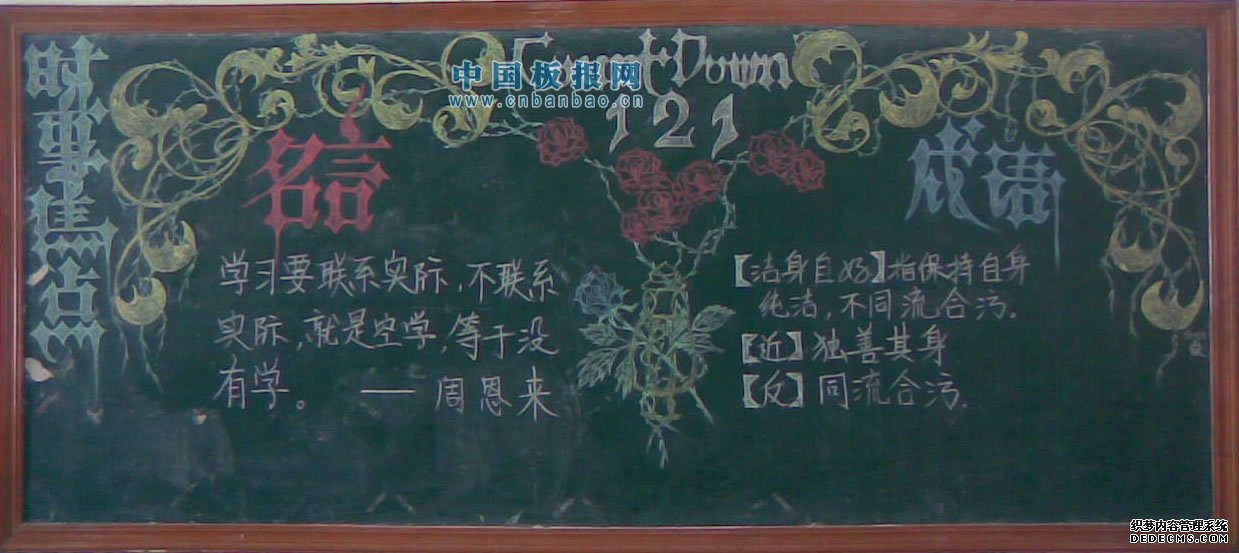 时事焦点
Count Down
121
中国板报网
www.cnbanbao.cn
名言
学习要联系实际,不联系
实际,就是空学,等于没
有学。 —— 周恩来
成语
【洁身自好】指保持自身
纯洁,不同流合污。
【近】独善其身
【反】同流合污.
织梦内容管理系统
DEDECMS.COM